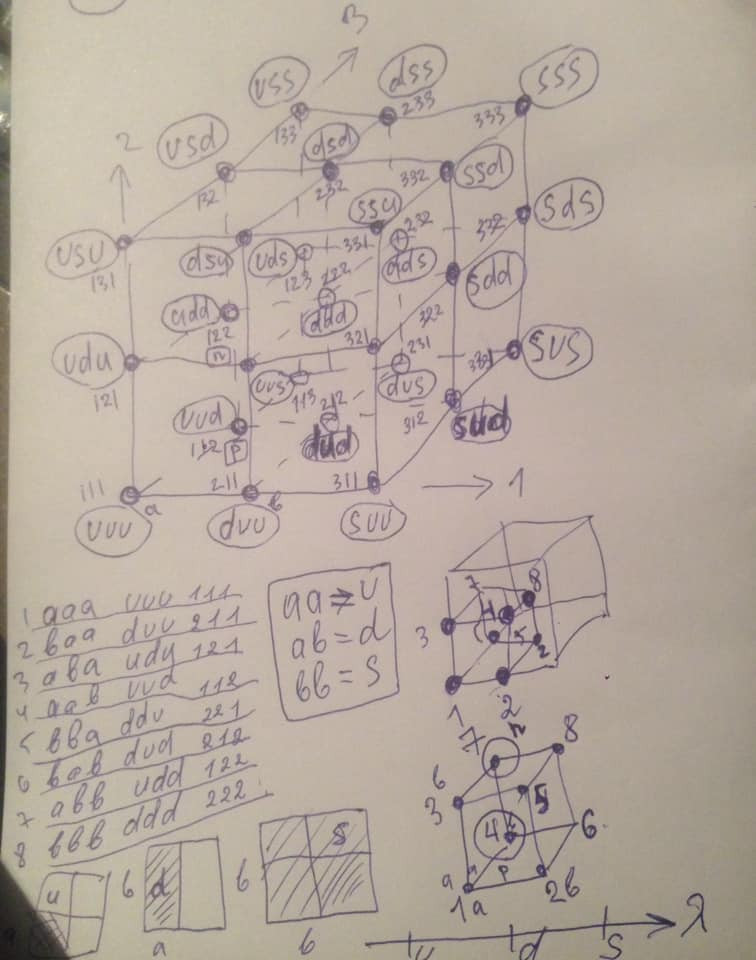 3
uss
dss
sss
233
133
333
usd
dsd
2
132
232
332
ssd
ssu
usu
dsu
uds
331
232
dds
332
sds
131
123
222
udd
ddd
sdd
322
122
n
udu
321
231
331
sus
121
uus
113
212
dus
312
uud
dud
sud
112
p
111
a
211
b
311
1
uuu
duu
suu
1 aaa uuu 111
2 baa duu 211
3 aba udu 121
4 aab uud 112
5 bba ddu 221
6 bab dud 212
7 abb udd 122
8 bbb ddd 222
aa = u
ab = d
bb = s
7
8
3
4
5
2
1
2
7
n
8
6
3
5
4
6
a
p
1a
2b
u
b
d
a
b
s
b
λ
u
d
s